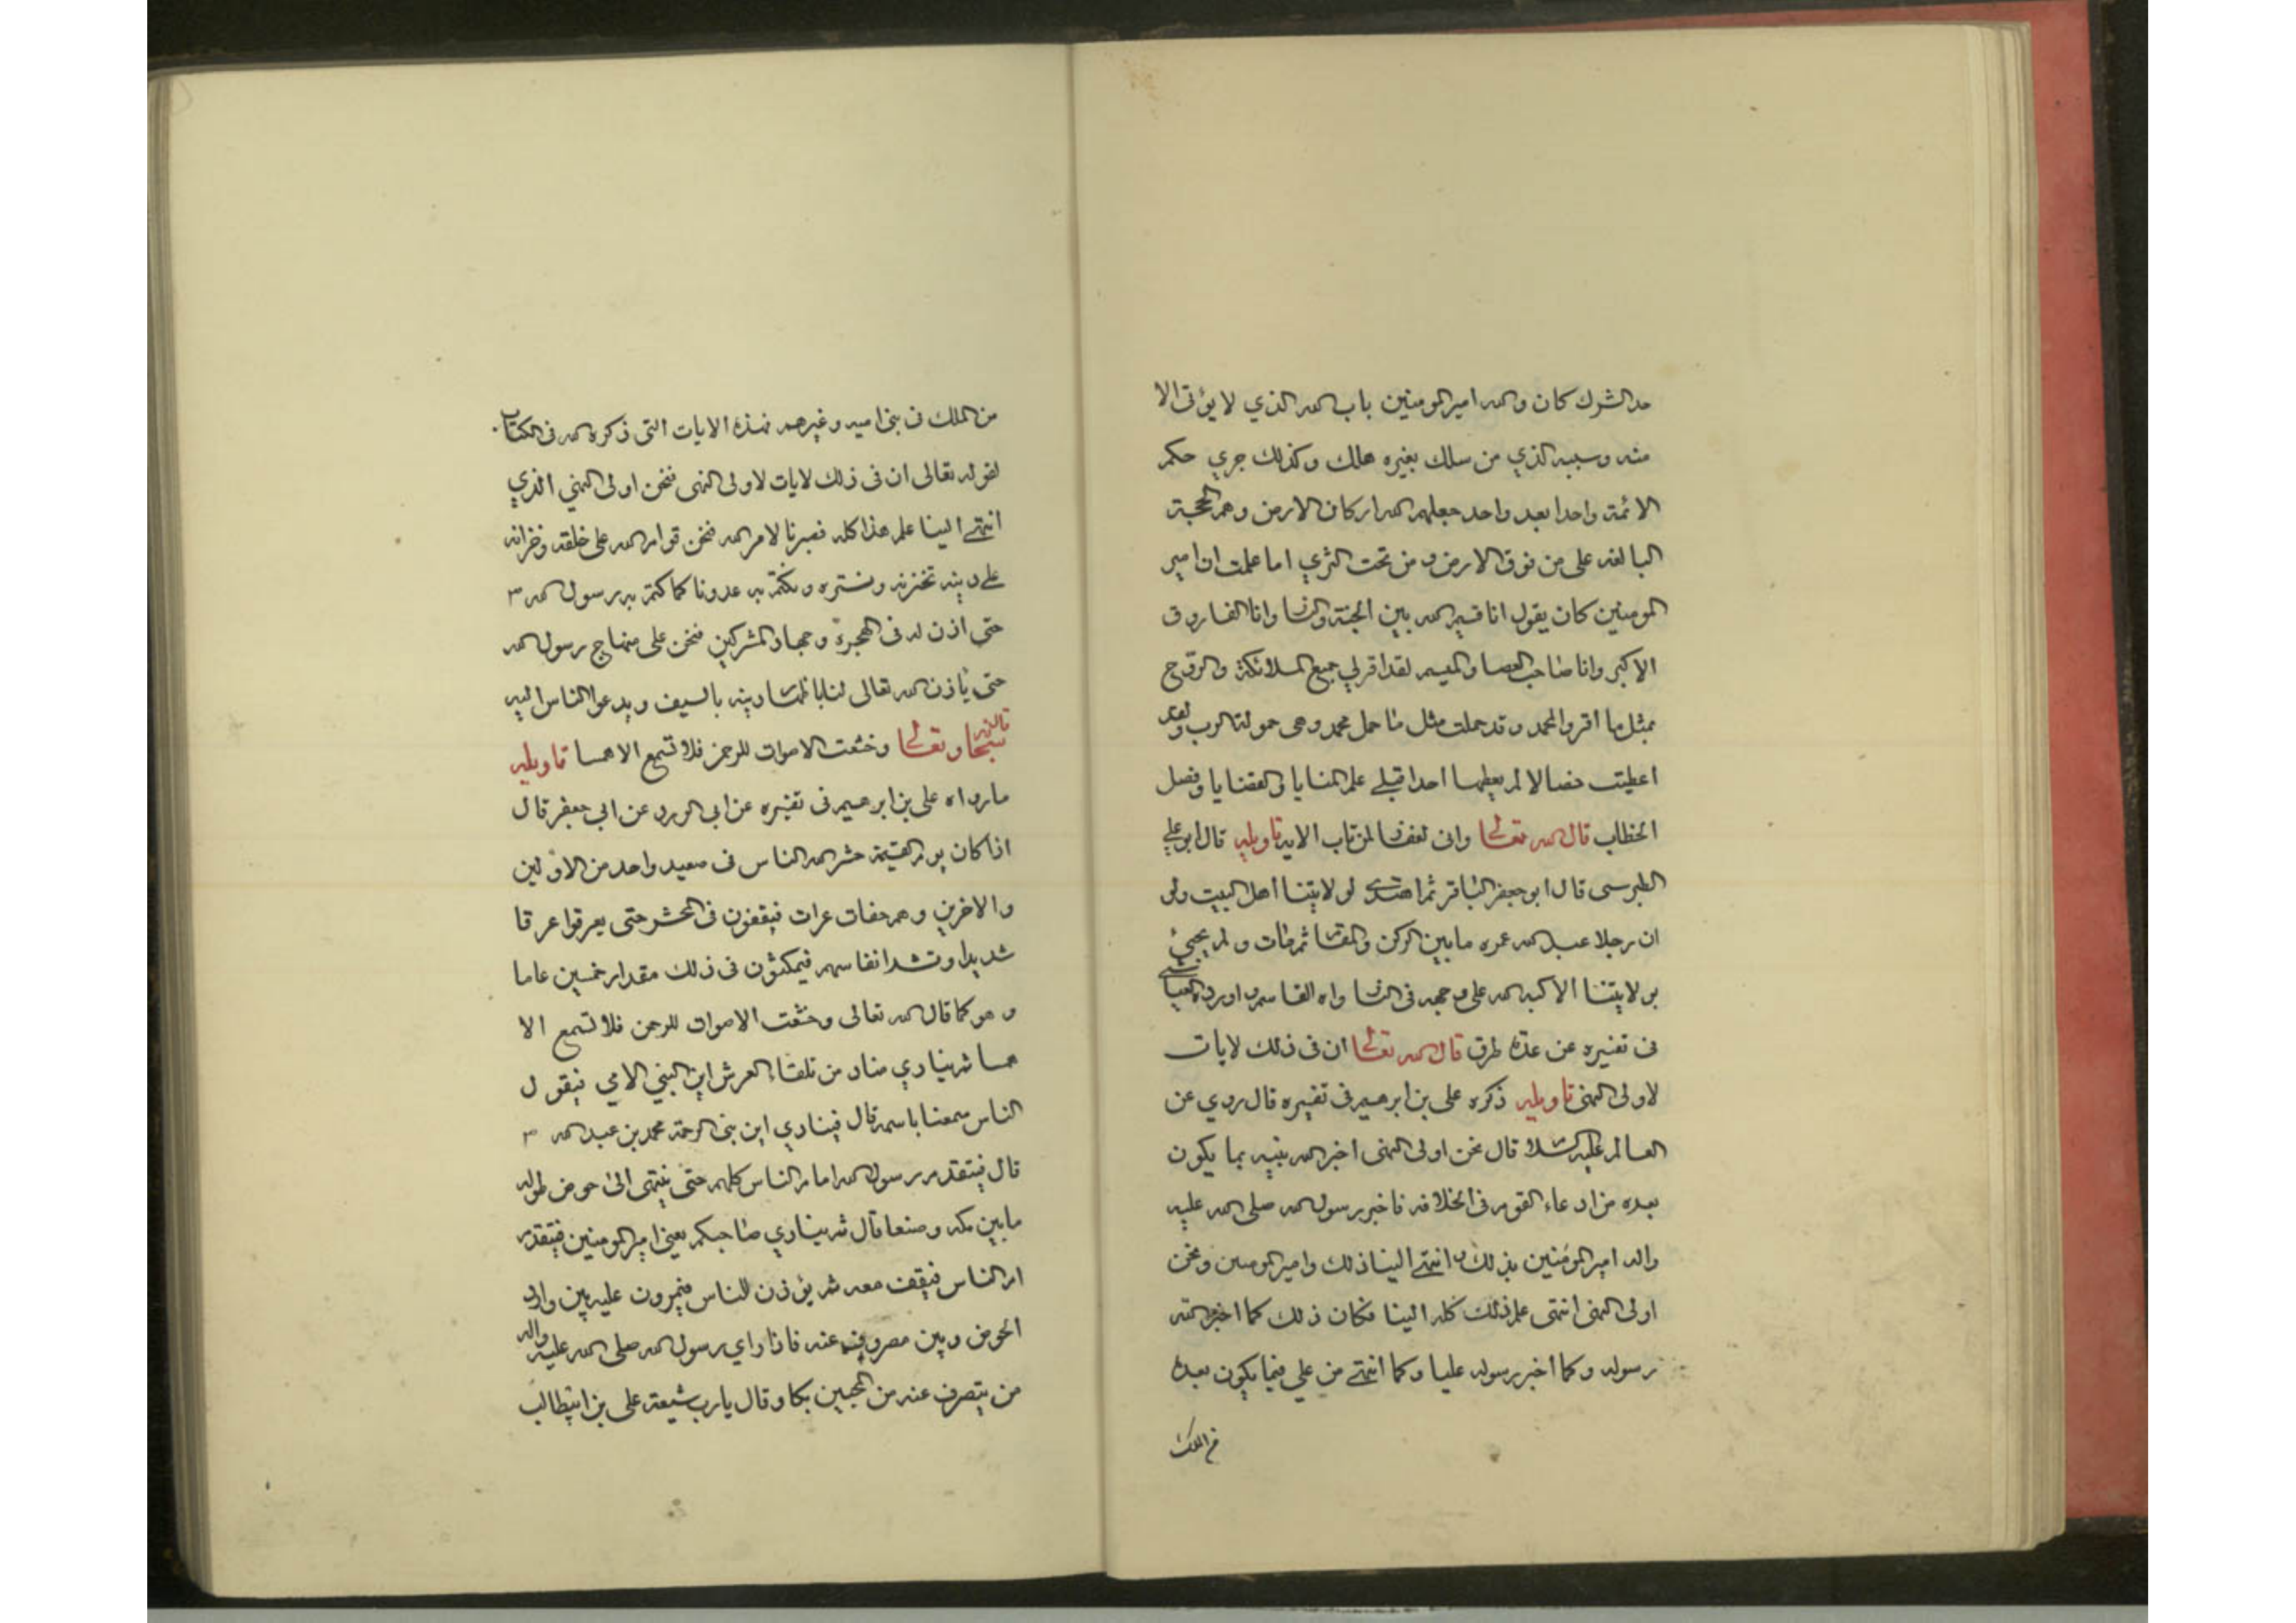 حد الشرك كان والله امير المومنين باب الله الذي لا يؤتى الا
منه وسبيه الذي من سلك بغيره هلك وكذلك جري حكم
الائمة واحدا بعد واحد جعلهم الله اركان الارض وهم الحجة
البالغة على من فوق الارض و من تحت الثري اما علمت ان امير
المومنين كان يقول انا قسيم الله بين الجنة والنار وانا الفاروق
الاكبر وانا صاحب العصا والميسم لقد اقر لي جميع الملائكة والروح
بمثل ما اقروا لمحمد وقد حملت مثل ما حمل محمد وهي حمولة الرب ولقد
اعطيت خصالا لم يعطها احدا قبلي علم المنايا و القضايا وفصل
الخطاب قال الله تعالى وانى لغفار لمن تاب الاية تاويله قال ابو علي
الطبرسى قال ابو جعفر الباقر ثم اهتدى لولايتنا اهل البيت ولو
ان رجلا عبد الله عمره ما بين الركن والمقام ثم مات و لم يجيئ
بولايتنا الا كبه الله على وجهه فى النار واه القاسم واورده العياشي
فى تفسيره عن عدة طرق قال الله تعالى ان فى ذلك لايات
لاولى النهى تاويله ذكره على بن ابرهيم فى تفسيره قال روي عن
العالم عليه السلام قال نحن اولى النهى اخبر الله نبيه بما يكون
بعده من ادعاء القوم فى الخلافه فاخبر رسول الله صلى الله عليه
واله امير المؤمنين بذلك و انتهى الينا ذلك وامير المومنين ونحن
اولى النهى انتهى علم ذلك كله الينا فكان ذلك كما اخبر الله
رسوله وكما اخبر رسوله عليا وكما انتهى من علي فيما يكون بعده
من الملك
من الملك فى بنى اميه وغيرهم فهذه الايات التى ذكره الله فى الكتاب
لقوله تعالى ان فى ذلك لايات لاولى النهى فنحن اولى النهي الذي
انتهى الينا علم هذا كله فصبرنا لامر الله فنحن قوام الله على خلقه وخزانه
على دينه نخزنه ونستره ونكتم به عدونا كما كتم به رسول الله ص
حتى اذن له فى الهجرة وجهاد المشركين فنحن على منهاج رسول الله
حتى ياذن الله تعالى لنا باظهار دينه بالسيف ويدعوا الناس اليه
قال الله سبحانه وتعالى وخشعت الاصوات للرحمن فلا تسمع الا همسا تاويله
ما رواه على بن ابرهيم فى تفسيره عن ابى الورد عن ابي جعفر قال
اذا كان يوم القيمة حشر الله الناس فى صعيد واحد من الاولين
والاخرين وهم حفات عرات فيقفون فى المحشر حتى يعرقوا عرقا
شديدا وتشد انفاسهم فيمكثون فى ذلك مقدار خمسين عاما
و هو كما قال الله تعالى وخشعت الاصوات للرحمن فلا تسمع الا
همسا ثم ينادي مناد من تلقاء العرش اين النبي الامي فيقول
الناس سمعنا باسمه قال فينادي اين نبى الرحمة محمد بن عبد الله ص
قال فيتقدم رسول الله امام الناس كلهم حتى ينتهى الى حوض طوله
ما بين مكه وصنعا قال ثم ينادي صاحبكم يعنى امير المومنين فيتقدم
ام الناس فيقف معه ثم يؤذن للناس فيمرون عليه بين وارد
الحوض وبين مصروف عنه فاذا راي رسول الله صلى الله عليه واله
من يتصرف عنه من المحبين بكا وقال يارب شيعة على بن ابيطالب